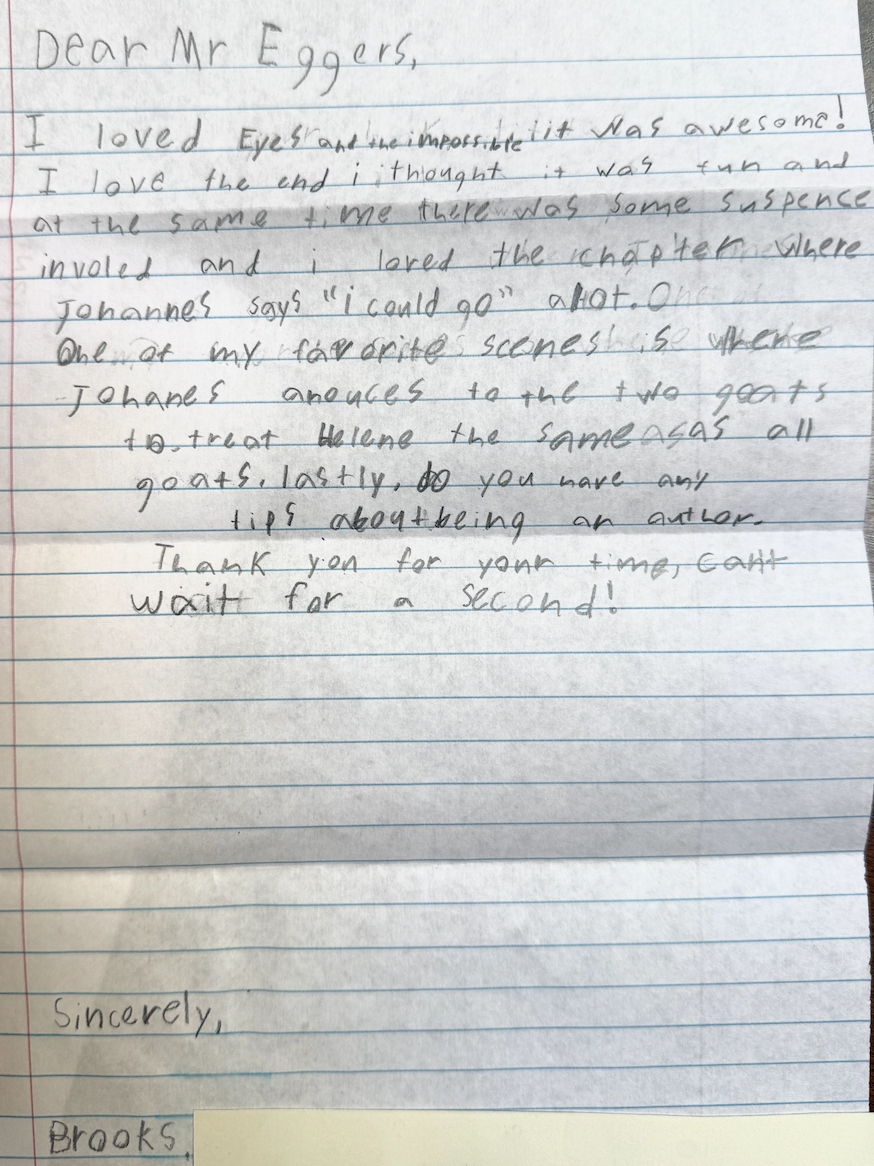 Dear Mr Eggers,
I loved Eyes and the impossible it was awesome!
I love the end i thought it was fun and
at the same time there was some suspence
involed and i loved the chapter where
Johannes says "i could go" alot.
One of my favorite scenes is where
Johanes anouces to the two goats
to treat Helene the same as all
goats. lastly, do you have any
tips about being an author.
Thank you for your time, cant
wait for a second!
Sincerely,
Brooks,